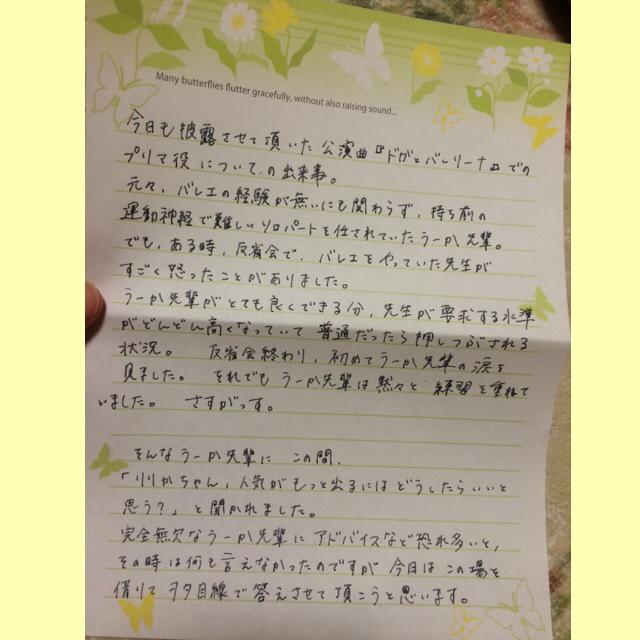 Many butterflies flutter gracefully, without also raising sound...
今日も披露させて頂いた公演曲『ドガとバレリーナ』での
プリマ役についての出来事。
元々、バレエの経験が無いにも関わらず、持ち前の
運動神経で難しいソロパートを任されていたうーか先輩。
でも、ある時、反省会で、バレエをやっていた先生が
すごく怒ったことがありました。
うーか先輩がとても良くできる分、先生が要求する水準
がどんどん高くなっていて 普通だったら押しつぶされる
状況。 反省会終わり、初めてうーか先輩の涙を
見ました。 それでもうーか先輩は黙々と練習を重ねて
いました。 さすがっす。
そんなうーか先輩に この間、
「りりかちゃん、人気がもっと出るにはどうしたらいいと
思う？」と聞かれました。
完全無欠なうーか先輩にアドバイスなど恐れ多いと、
その時は何も言えなかったのですが 今日はこの場を
借りてヲタ目線で答えさせて頂こうと思います。